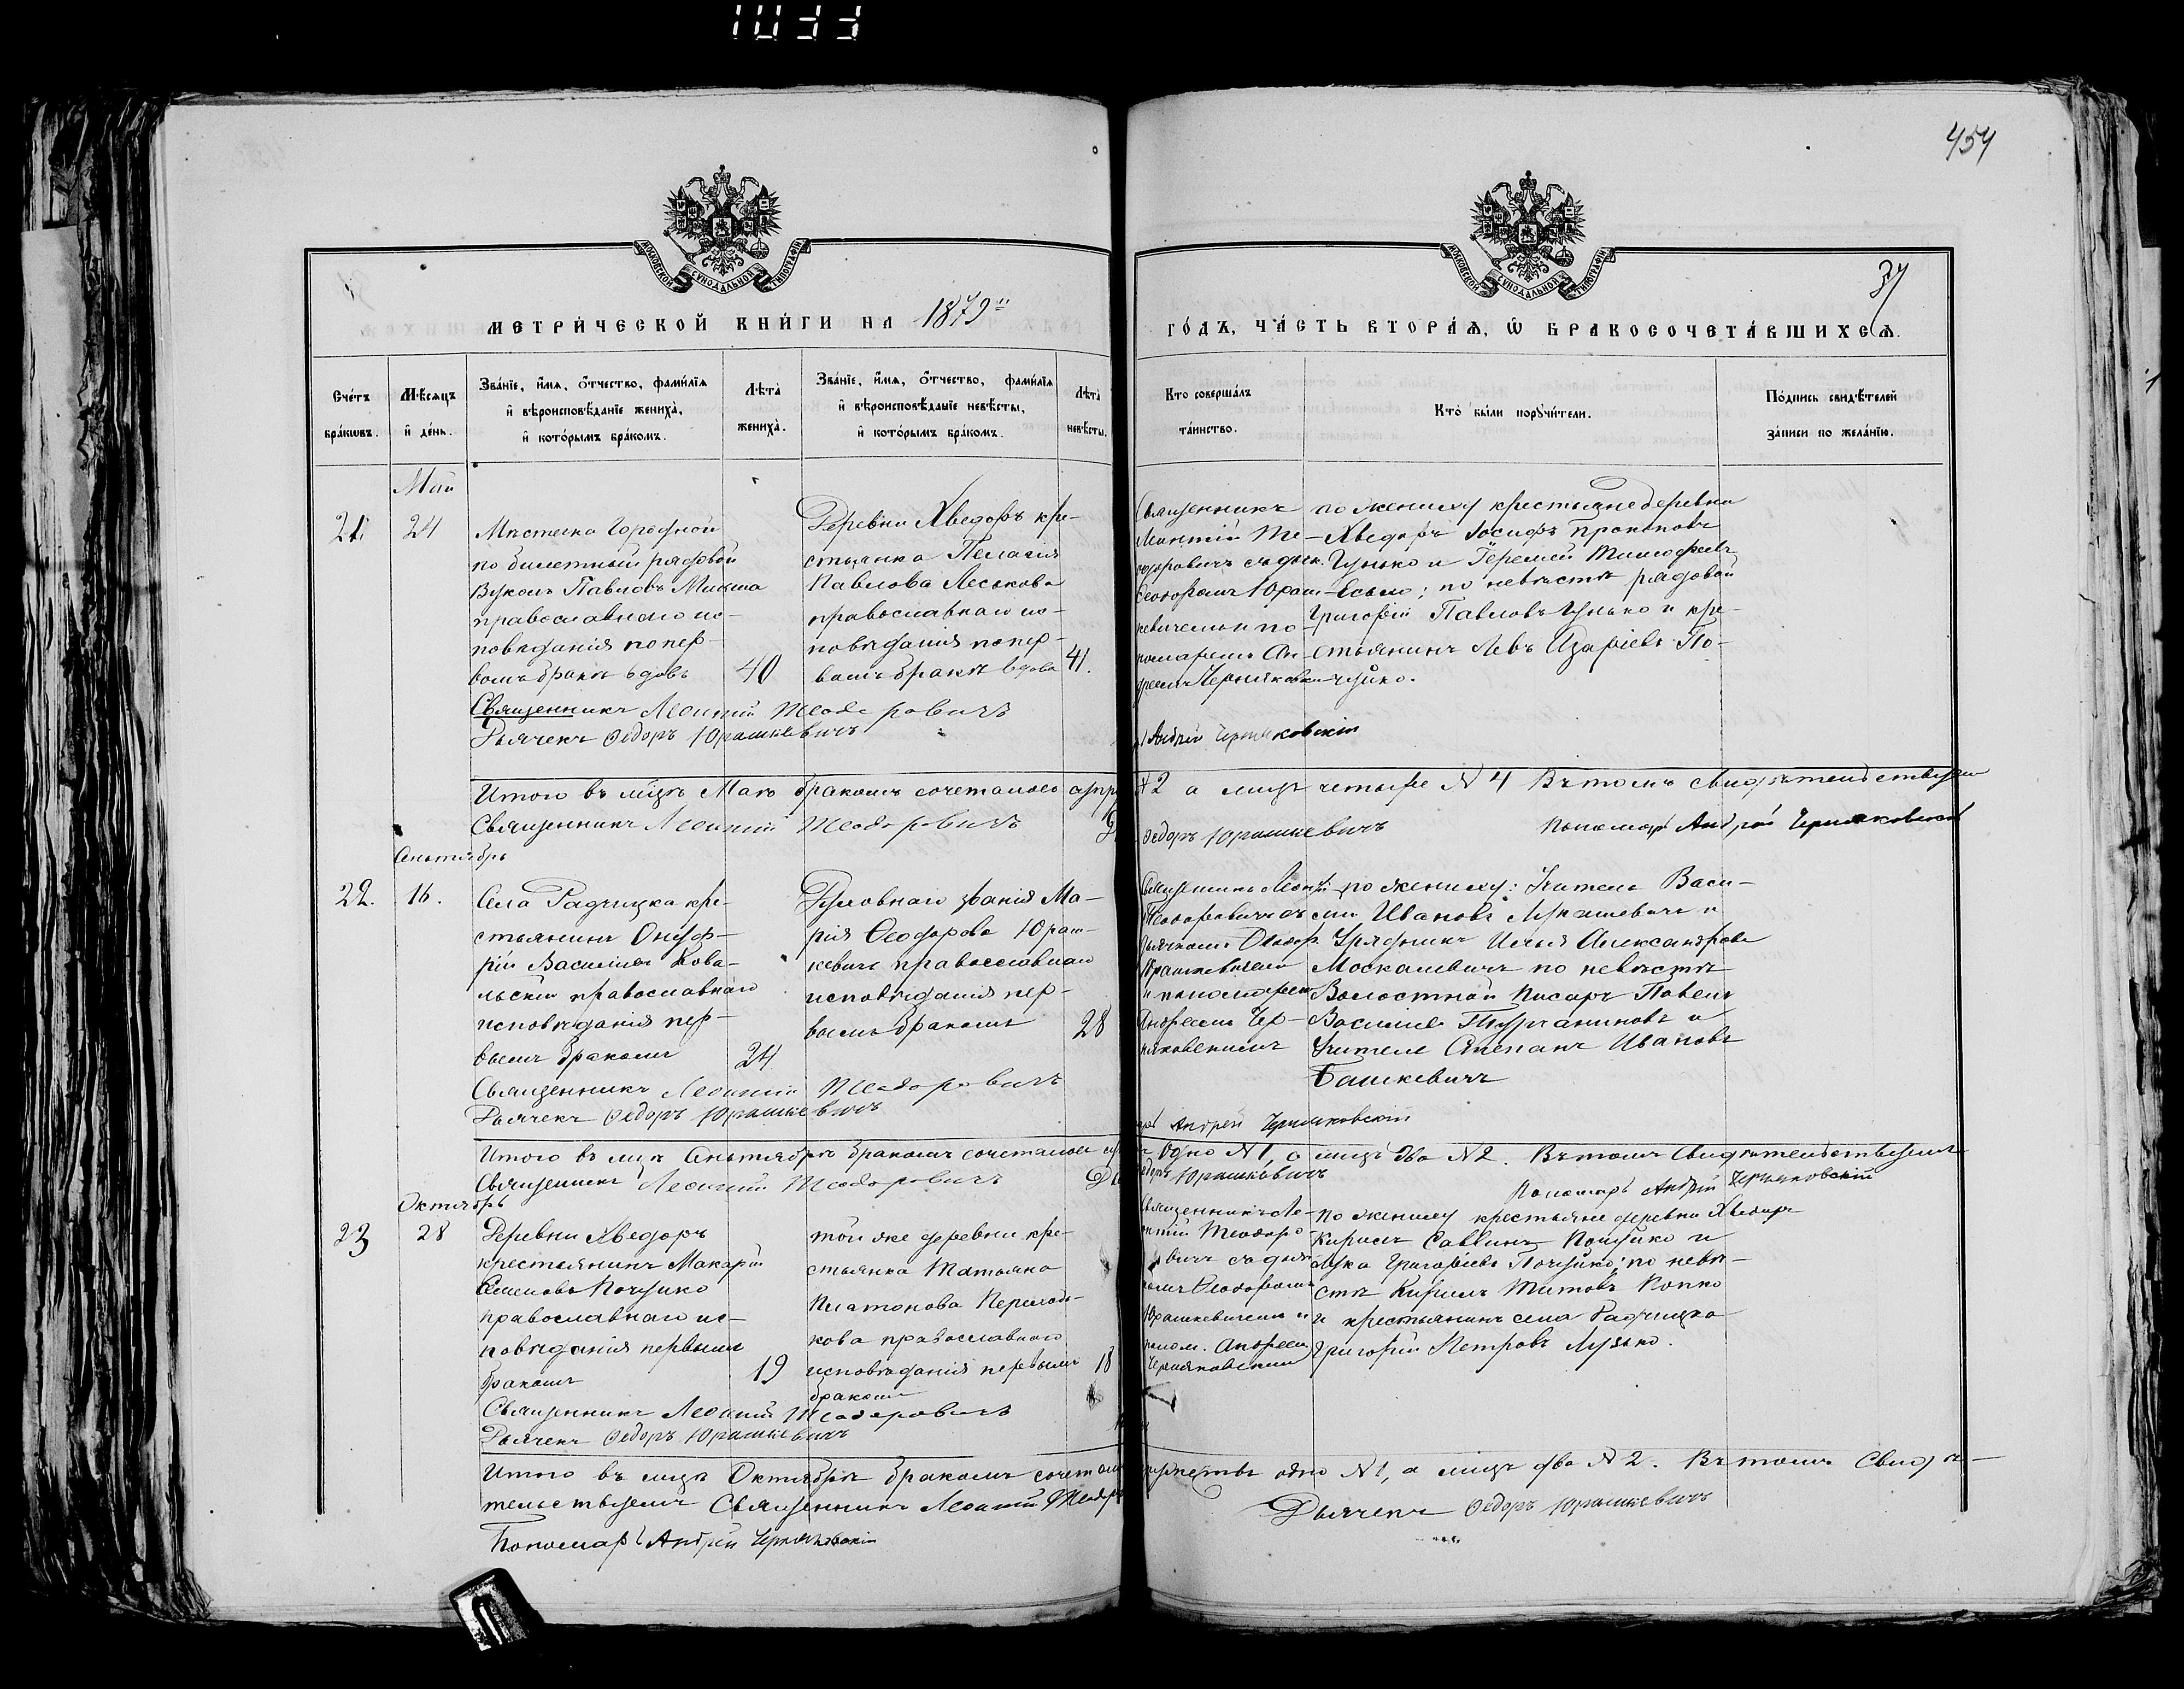 1033
454
МОСКОВСКОЙ СУНОДАЛЬНОЙ ТИПОГРАФІИ
МОСКОВСКОЙ СУНОДАЛЬНОЙ ТИПОГРАФІИ
37
МЕТРИ́ЧЕСКОЙ КНИ́ГИ НА 1879й
ГО́ДЪ, ЧА́СТЬ ВТОРА́Ѧ, Ѿ БРАКОСОЧЕТА́ВШИХСѦ.
Сче́тъ бра́кѡвъ.
Мѣ́сяцъ и де́нь.
Зва́нїе, и́мѧ, о́тчество, фами́лїѧ
и вѣроисповѣ́данїе жениха̀,
и кото́рымъ бра́комъ.
Лѣта̀ жениха̀.
Зва́нїе, и́мѧ, о́тчество, фами́лїѧ
и вѣроисповѣ́данїе невѣ́сты,
и кото́рымъ бра́комъ.
Лѣта̀ невѣ́сты.
Кто соверша́лъ
та́инство.
Кто̀ бы́ли поручи́тели.
По́дпись свидѣ́телей
за́писи по жела́нїю.
Май
21. 24
Мѣстечка Городной
по билетный рядовой
Павловъ
православнаго ис-
повѣданія по пер-
вомъ бракѣ вдовъ 40
Деревни Хведоръ кре-
стьянка Пелагия
Павлова Леськова
православнаго ис-
повѣданія по пер-
вомъ бракѣ вдова 41.
Священникъ
Леонтій Те-
одоровичъ съ дьяч.
Феодоромъ Юраш-
кевичемъ и по-
номаремъ Ан-
дреемъ Черняковски-
по жениху крестьяне деревни
Хведоръ Іосифъ Прокоповъ
Гунько и Іеремій Тимофеевъ
по невѣстѣ рядовой
Григорій Павловъ Гунько и кре-
стьянинъ Левъ Азаріевъ По-
чуйко.
Священникъ Леонтий Теодоровичъ
Дьячекъ Федоръ Юрашкевичъ
Андрей Черняковскій
Итого въ мцѣ Маѣ бракомъ сочеталось
2 а лицъ четыре N 4 Въ томъ свидѣтельствуемъ
Священникъ Леонтий Теодоровичъ
Федоръ Юрашкевичъ
Пономарь Андрей Черняковский
Сентябрь
22. 16.
Села Радчицка кре-
стьянинъ Онуф-
рій Василіевъ Кова-
льскій православнаго
исповѣданія пер-
вымъ бракомъ 24
Духовнаго званія Ма-
рія Феодорова Юраш-
кевичъ православнаго
исповѣданія пер-
вымъ бракомъ 28
Священникъ Леонтій
Теодоровичъ съ
дьячкомъ Феодор.
Юрашкевичемъ
и пономаремъ
Андреемъ Чер-
няковскимъ
по жениху: Учитель Васи-
лій Ивановъ Лукашевичъ и
Урядникъ Илья Александровъ
Москалевичъ по невѣстѣ
Волостной Писарь Павелъ
Василіевъ и
Учитель Степанъ Ивановъ
Башкевичъ
Священникъ Леонтий Теодоровичъ
Дьячекъ Федоръ Юрашкевичъ
Андрей Черняковский
Итого въ мцѣ Сентябрѣ бракомъ сочеталось
одно N 1, а лицъ два N 2. Въ томъ свидѣтельствуемъ
Священникъ Леонтий Теодоровичъ
Юрашкевичъ
Пономарь Андрей Черняковский
Октябрь
23 28
Деревни Хведоръ
крестьянинъ Макарій
Семеновъ Почуйко
православнаго ис-
повѣданія первымъ
бракомъ 19
той же деревни кре-
стьянка Татьяна
Платонова
православнаго
исповѣданія первымъ 18
бракомъ
Священникъ Ле-
онтій Теодоро-
вичъ съ дьяч-
комъ Феодоромъ
Юрашкевичемъ и
поном. Андреемъ
Черняковскимъ
по жениху крестьяне деревни Хведоръ
Кирилъ Саввинъ Почуйко и
Лука Григоріевъ Почуйко; по невѣ-
стѣ Кирилъ Титовъ Копко
и крестьянинъ села Радчицка
Григорій Петровъ Лузько.
Священникъ Леонтий Теодоровичъ
Дьячекъ Федоръ Юрашкевичъ
Итого въ мцѣ Октябрѣ бракомъ сочеталось
супружествъ одно N 1, а лицъ два N 2. Въ томъ Свидѣ-
тельствуемъ Священникъ Леонтий Теодоровичъ
Дьячекъ Федоръ Юрашкевичъ
Пономарь Андрей Черняковскій